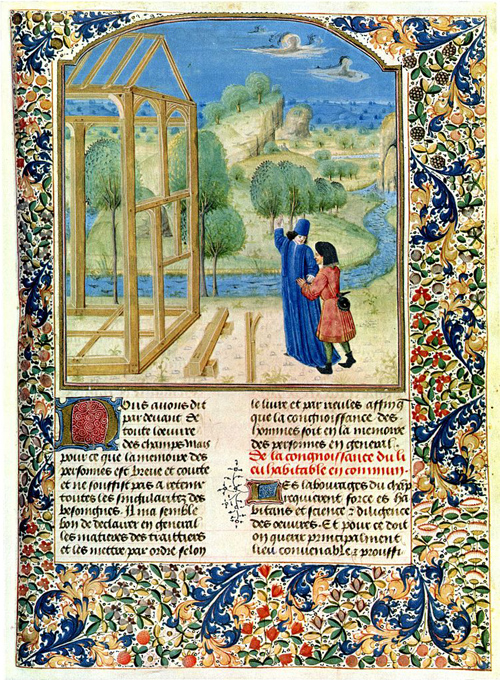 Nous avons dit
par devant de
toute loeuvre
des champs mais
pour ce que la memoire des
personnes est breve et courte
et ne souffist pas a retenir
toutes les singularitez des
besongnes. Il ma semble
bon de declairer en general
les matieres des traittiers
et les mettre par ordre selon
le livre et par rieules affinq
que la congnoissance des
hommes soit en la memoire
des personnes en general.
De la congnoissance du li
eu habitable en commun.
Les labourages des chāp
requierent force es ha
pitans et science z diligence
des oeuvres. Et pour ce doit
on querir principalment
lieu convenable z prouffi